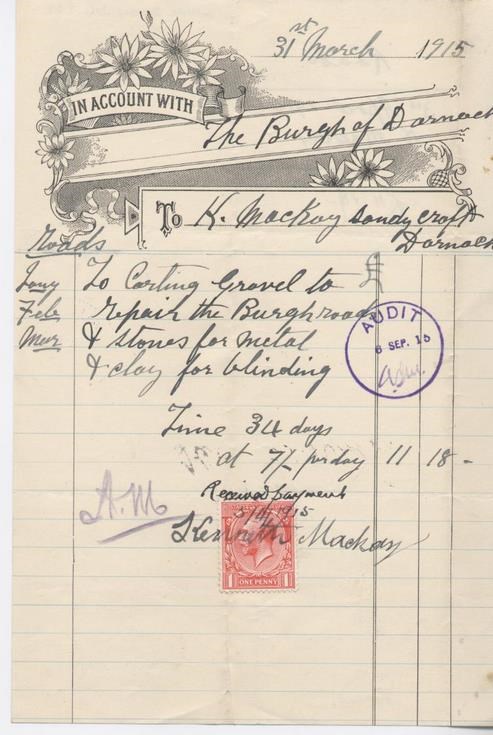 31st March 1915
IN ACCOUNT WITH
The Burgh of Dornoch
To K. Mackay Sandycroft
Dornoch
Roads
Jany To Carting Gravel to
Feb repair the Burgh roads
Mar & stones for metal
& clay for blinding
£
AUDIT
6 SEP. 15
Time 34 days
at 7/- per day 11 18 -
A.M
Received payment
1915
Kenneth Mackay
ONE PENNY